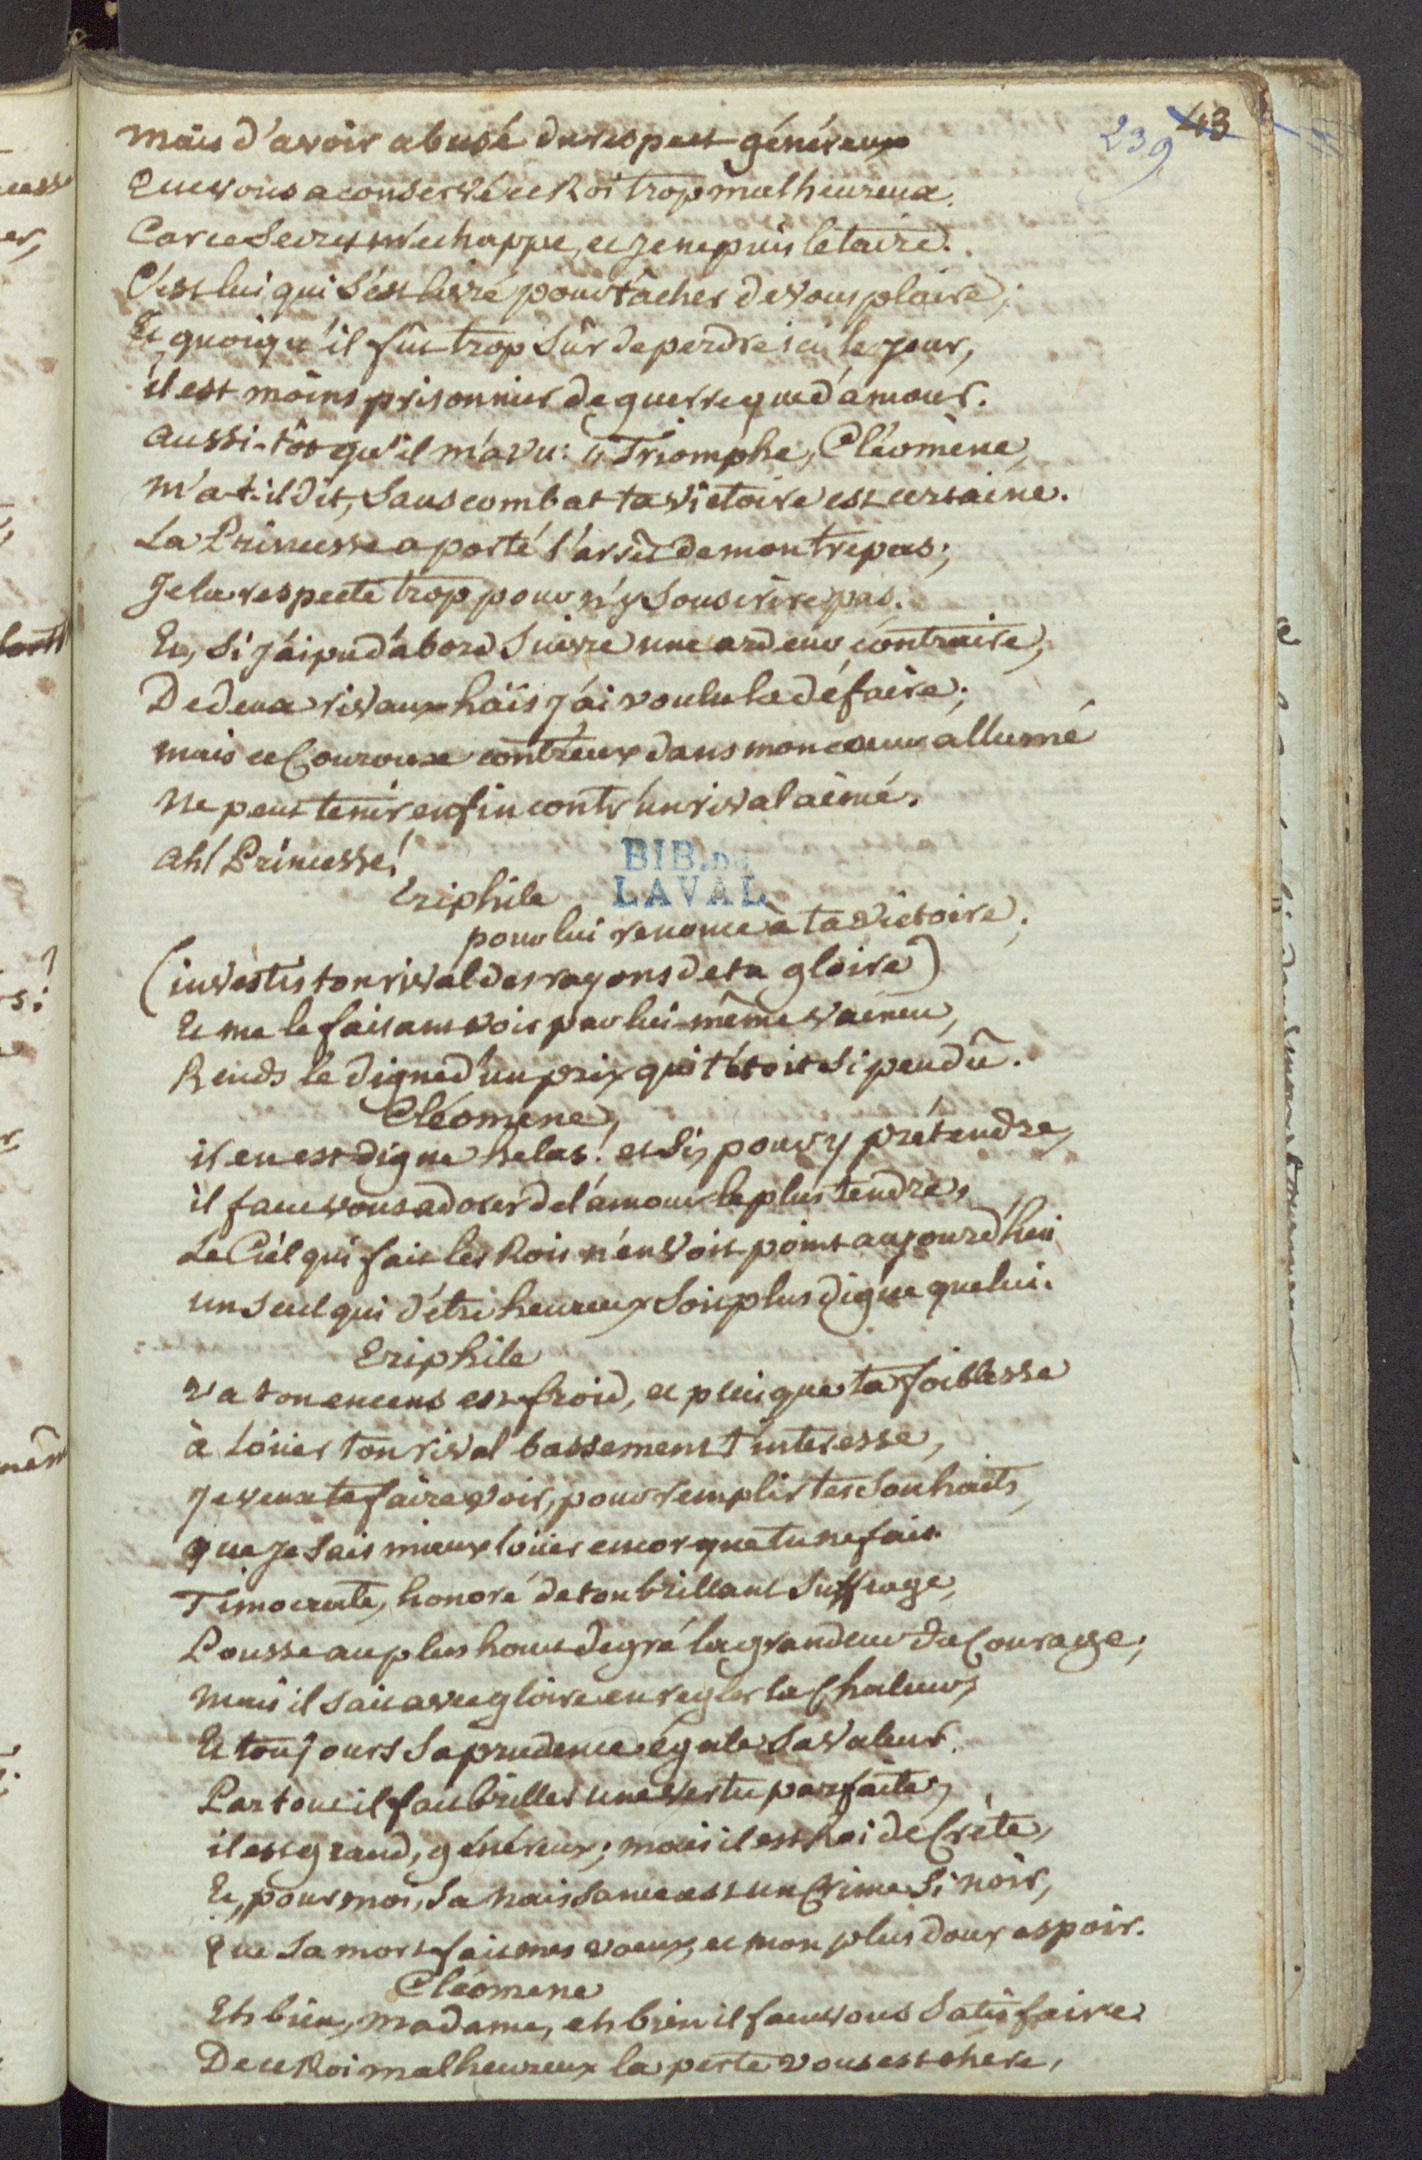 43
239
mais d'avoir abusé du respect généreux
Que vous a conservé ce Roi trop malheureux.
Car ce Secret m'echappe, et je ne puis le taire.
C'est lui qui s'est livré pour tâcher de vous plaire;
Et quoiqu'il fût trop sûr de perdre ici le jour,
il est moins prisonnier de guerre que d'amour.
aussi-tôt qu'il m'a vu: " Triomphe, Cléomène,
m'a-t-il dit, sans combat ta victoire est certaine.
La Princesse a porté l'arrêt de mon trépas;
Je la respecte trop pour n'y souscrire pas.
Et, si j'ai pu d'abord suivre une ardeur contraire,
De deux rivaux haïs j'ai voulu la défaire;
mais ce Couroux contr'eux dans mon coeur allumé
Ne peut tenir enfin contr'un rival aimé.
ah! Princesse!
BIB. DE
LAVAL
Eriphile
pour lui renonce à ta victoire;
(investis ton rival des rayons de ta gloire)
Et me le faisant voir par lui-même vaincu,
Rends le digne d'un prix qui t'étoit si peu dû.
Cléomene,
il en est digne helas! et si, pour y prétendre,
il faut vous adorer de l'amour le plus tendre,
Le Ciel qui fait les Rois n'en voit point aujourd'hui
un seul qui d'être heureux soit plus digne que lui.
Eriphile
va ton encens est froid, et puisque ta foiblesse
à loüer ton rival bassement t'interesse,
Je veux te faire voir, pour remplir tes souhaits,
que je sais mieux loüer encor que tu ne fais.
Timocrate, honoré de ton brillant suffrage,
Pousse au plus haut degré la grandeur du Courage;
Mais il sait avec gloire en regler la Chaleur,
Et toujours sa prudence égale sa valeur.
Partout il fait briller une vertu parfaite,
il est grand, généreux; mais il est Roi de Crète,
Et, pour moi, sa naissance est un Crime si noir,
Que sa mort fait mes voeux, et mon plus doux espoir.
Cléomene
Eh bien, madame, eh bien il faut vous satisfaire.
De ce Roi malheureux la perte vous est chere,